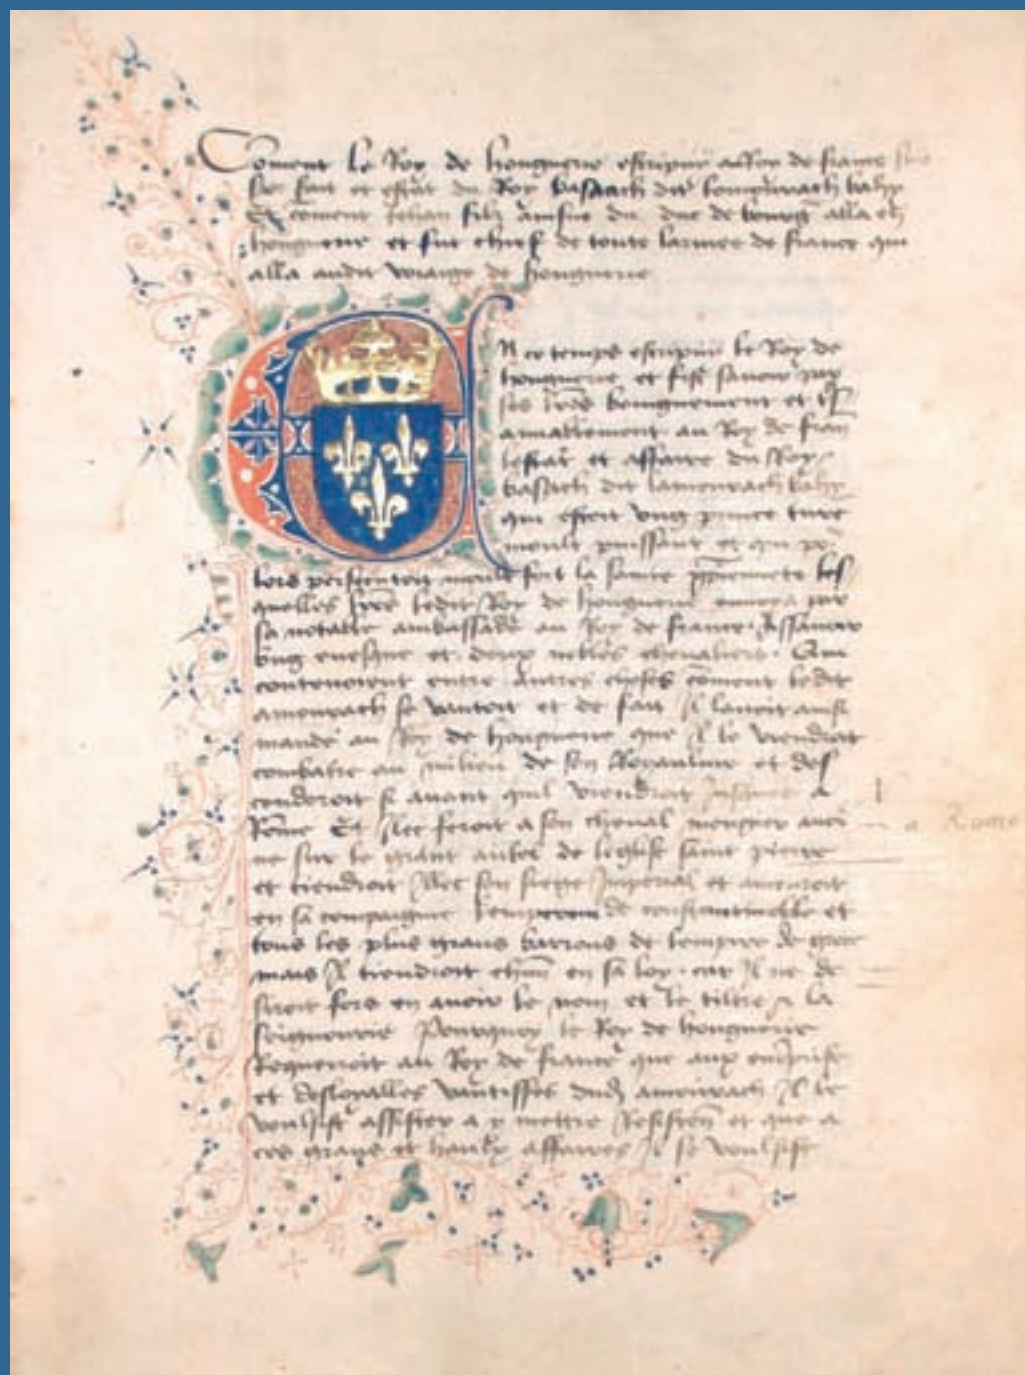 Coment le Roy de honguerie escripvit au Roy de france
le fait et estat du Roy basaach dit baxy
Et coment Jehan filz ainsne du duc de bourgᵉ alla en
honguerie et fut chief de toute larmee de france qui
alla audit voiaige de honguerie
En ce temps escripvit le Roy de
honguerie et fist savoir par
ses lr̃es et
amiablement au Roy de fran
lestat et affaire du Roy
basaach dit lamourach baxy
qui estoit ung prince turc
moult puissant et qui po
lors persecutoit moult fort la sainte les
quelles lr̃es ledit Roy de honguerie envoya par
sa notable ambassade au Roy de france Assavoir
ung evesque et deux nobles chevaliers Qui
contenoient entre autres choses cõment ledit
amourach se vantoit et de fait Il lavoit ainsi
mandé au Roy de honguerie que Il le viendroit
combatre au milieu de son Royaulme et des
cenderoit si avant quil viendroit Jusques a
Rõme Et Illec feroit a son cheval menger avei
ne sur le grant autel de leglise saint pierre
et tiendroit Illec son siege Imperial et amenroit
en sa compaignie lempereur de constantinoble et
tous les plus grans barrons de lempire de grece
mais Il tiendroit chũn en sa loy car Il ne de
siroit fors en avoir le nom et le tiltre la
seignourie Pourquoy le Roy de honguerie
Requeroit au Roy de france que aux
et desloyalles vantisses dudit amourach Il le
voulsist assister a y mettre et que a
ces grans et haulx affaires Il se voulsist